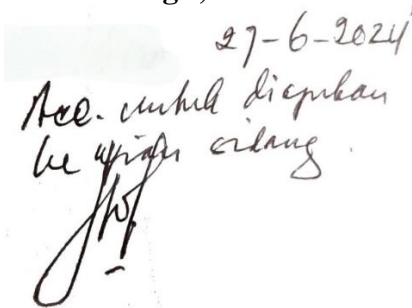 27-6-2024
Acc. untuk diajukan
ke ujian sidang.